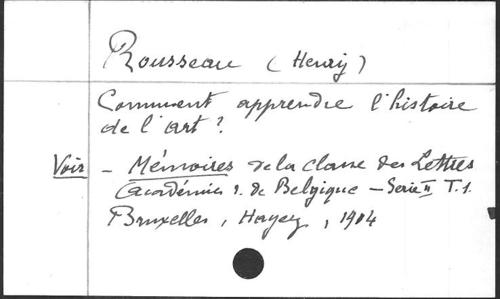 Rousseau (Henry)
Comment apprendre l'histoire
de l'art?
Voir - Mémoires de la classe des Lettres
(académie r. de Belgique - Serie II T.1.
Bruxelles, Hayez, 1904